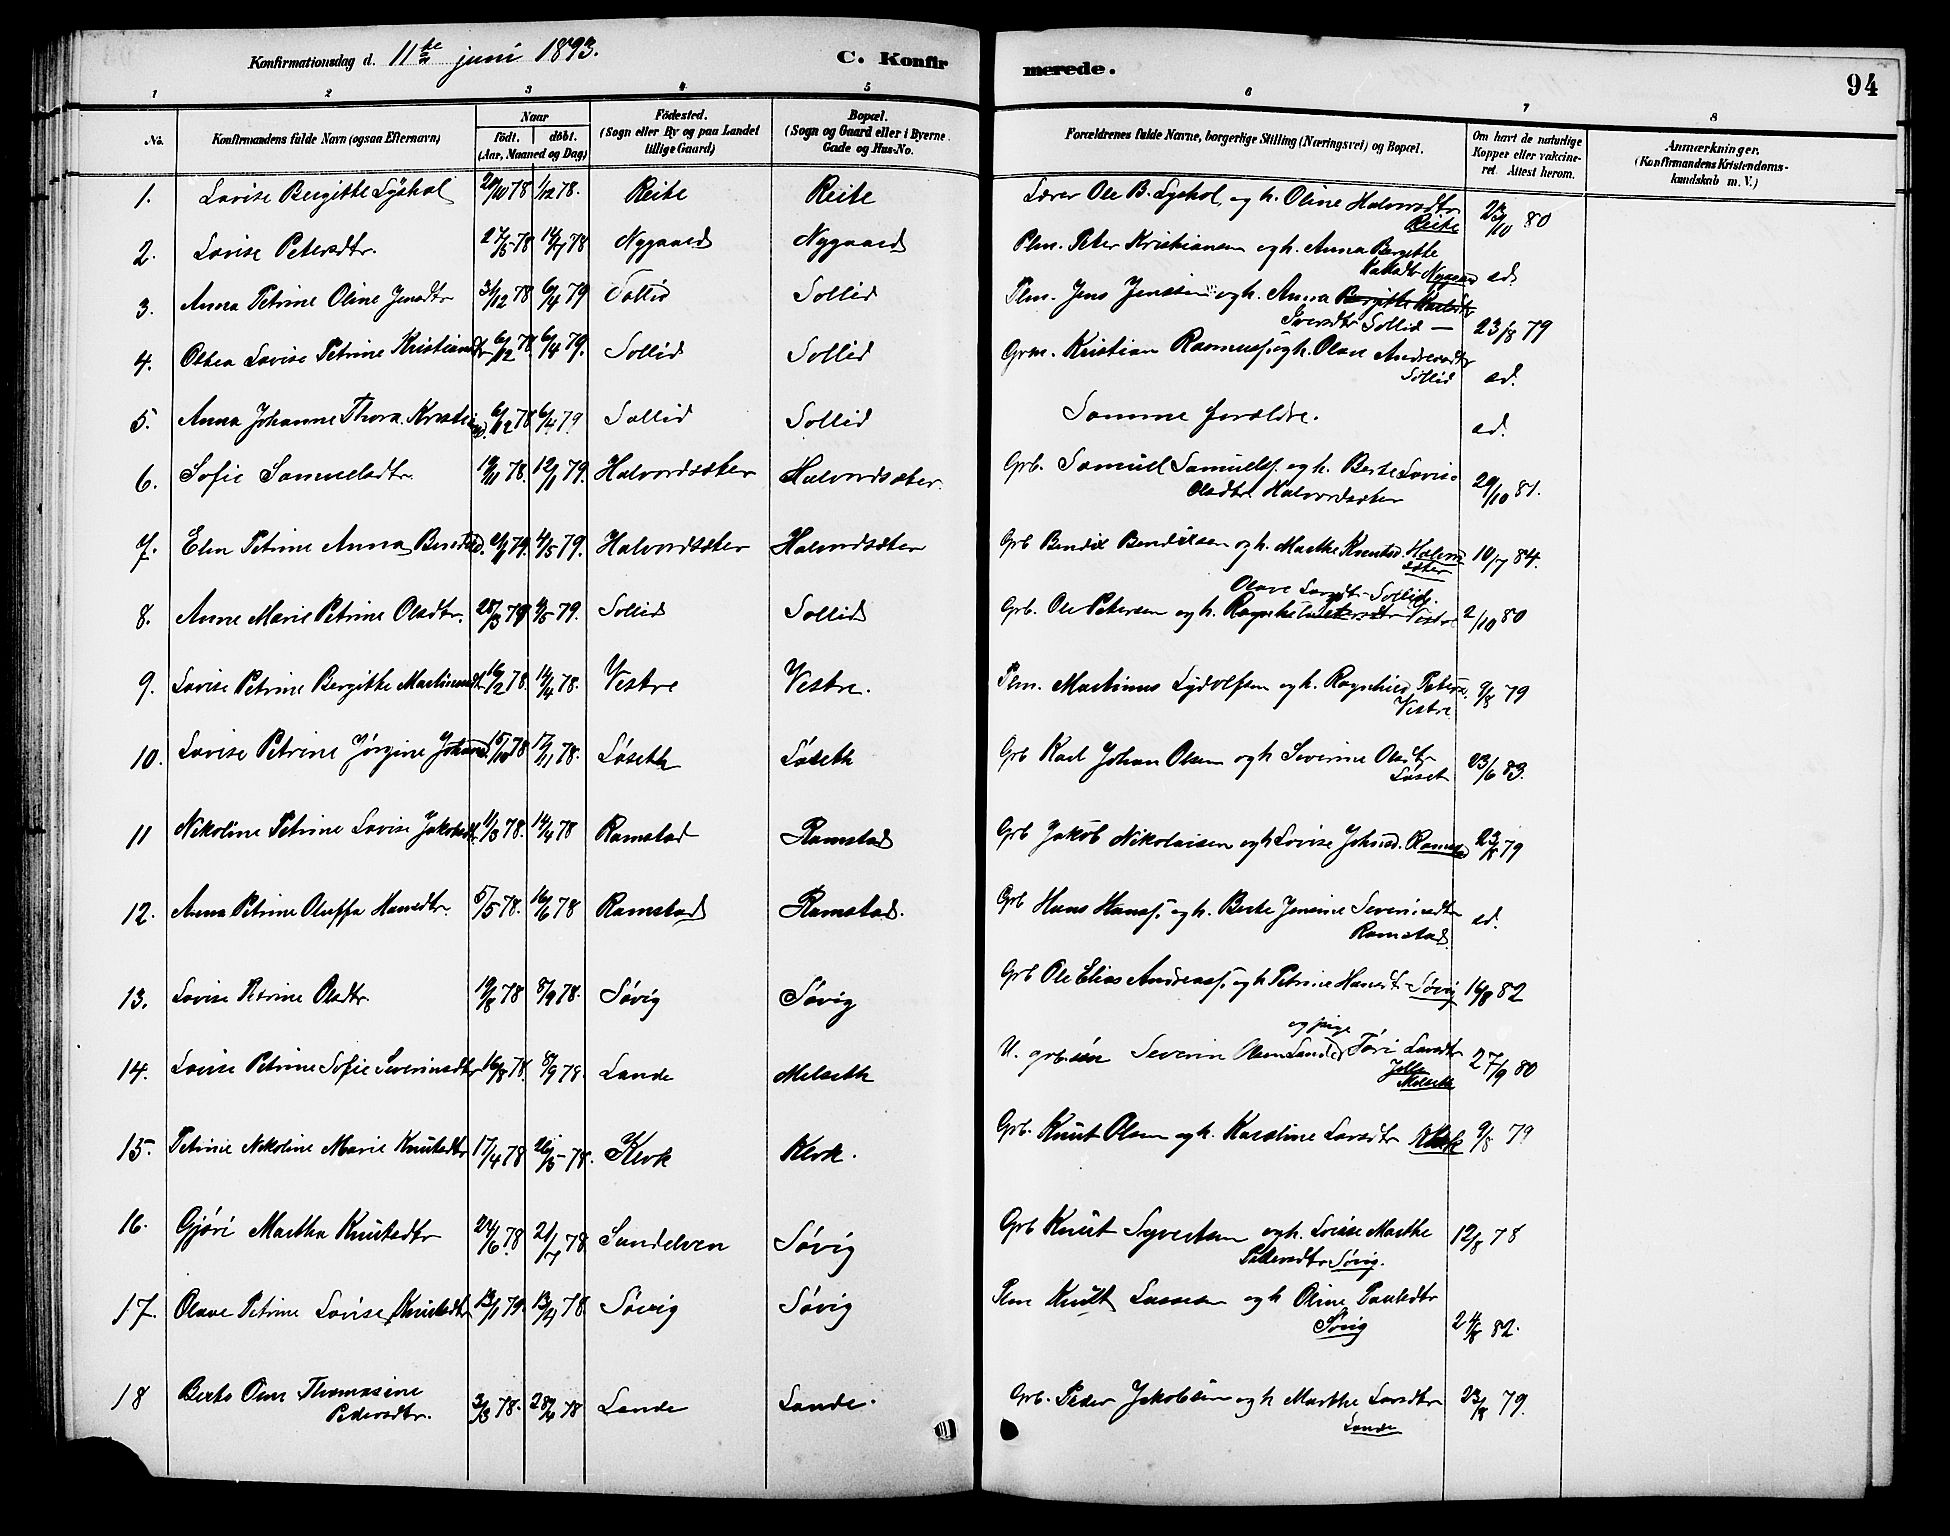 Konfirmationsdag d. 11te juni 1893. C. Konfirmerede. 94
1 2 3 4 5 6 7 8
No. Konfirmandens fulde Navn (ogsaa Efternavn) Naar födt. döbt. (Aar, Maaned og Dag) Födested. (Sogn eller By og paa Landet tillige Gaard) Bopæl. (Sogn og Gaard eller i Byerne Gade og Hus-No. Forældrenes fulde Navne, borgerlige Stilling (Næringsvei) og Bopæl. Om havt de naturlige Kopper eller vakcineret. Attest herom. Anmærkninger. (Konfirmandens Kristendomskundskab m. V.)
1. Lovise Bergitte Lyshol 29/10 78 1/12 78. Reite Reite Lærer Ole B. Lyshol og h. Oline Halvorsdtr Reite 23/10 80
2. Lovise Petersdtr. 27/5 78 14/7 78 Nygaard Nygaard Plm. Peter Kristiansen og h. Anna Bergitte Nygaard ad
3. Anna Petrine Oline Jensdtr 31/12 78 6/4 79 Sollid Sollid Plm. Jens Jenssen og h. Anna Bergitte Iversdtr Sollid — 23/8 79
4. Oltea Lovise Petrine Kristiansdtr 6/12 78 6/4 79. Sollid Sollid Grm. Kristian Rasmuss. og h. Olave Andreasdtr Sollid ad.
5. Anna Johanne Thora Kristiansd. 6/12 78 6/4 79 Sollid Sollid Samme forældre. ad.
6. Sofie Samuelsdtr. 19/11 78. 12/1 79. Halvordsæter Halvordsæter. Grb. Samuel Samuels. og h. Berte Lovise Olsdtr Halvordsæter 29/10 81.
7. Elen Petrine Anna Bendixd. 79. 4/5 79. Halvordsæter Halvordsæter Grb Bendix Bendixsen og h. Marthe Knutsd. Halvordsæter 10/7 84.
8. Anne Marie Petrine Olsdtr. 28/3 79 4/5 79. Sollid Sollid Grb. Ole Petersen og h. Ragnhild Petersdtr Vestre Olave Larsdtr Sollid. 2/10 80
9. Lovise Petrine Bergitte Martinusdt. 16/2 78. 14/4 78. Vestre Vestre. Plm. Martinus Lydolfsen og h. Ragnhild Petersd. Vestre 9/8 79
10. Lovise Petrine Jørgine Johansd. 15/10 78 17/11 78. Løseth Løseth Grb Karl Johan Olsen og h Severine Olsdtr Løset 23/6 83.
11 Nikoline Petrine Lovise Jakobsdt. 11/3 78. 14/4 78 Ramstad Ramstad Grb Jakob Nikolaisen og h Lovise Johnsd. Ramstad 23/8 79
12. Anna Petrine Oluffa Hansdtr. 5/5 78. 16/6 78 Ramstad Ramstad. Grb Hans Hanss. og h. Berte Jensine Severinsdtr Ramstad. ad.
13. Lovise Petrine Olsdtr 19/8 78 8/9 78. Søvig Søvig Grb Ole Elias Andreass. og h Petrine Hansdtr Søvig 16/8 82
14. Lovise Petrine Sofie Severinsdtr 16/8 78. 8/9 78. Lande Melseth U. grb.søn Severin Olsen Lande og pige Tøri Larsdtr Melseth 27/9 80
15. Petrine Nikoline Marie Knutsdtr 17/4 78 26/5 78. Klok Klok. Grb. Knut Olsen og h. Karoline Larsdtr Klok 9/8 79
16. Gjøri Martha Knutsdtr 24/6 78. 21/7 78 Sundelven Søvig Grb Knut Syvertsen og h. Lovise Marthe Pettersdtr Søvig. 12/8 78
17. Olave Petrine Lovise Knutsdtr 13/1 79. 13/4 78 Søvig Søvig Plm Knut Lassesen og h Oline Paulsdtr Søvig 24/8 82.
18 Berte Oline Thomasine Pedersdtr. 3/3 78. 28/4 78 Lande Lande. Grb. Peder Jakobsen og h Marthe Larsdtr Lande 23/8 79.